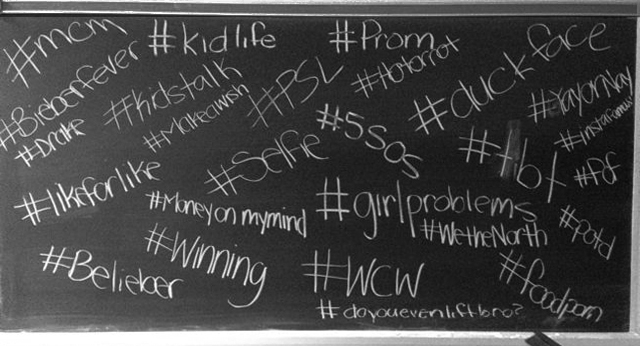 #mcm
#kidlife
#Prom
#duckface
#Bieberfever
#kidstalk
#PSL
#Hotorrot
#YayorNay
#Drake
#Makeawish
#5SOS
#Selfie
#tbt
#likeforlike
#Moneyonmymind
#girlproblems
#WetheNorth
#potd
#Winning
#Belieber
#WCW
#foodporn
#doyouevenliftbro?